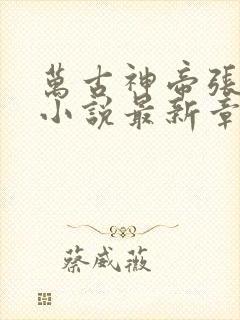 萬古神帝張
小說最新章
蔡威薇